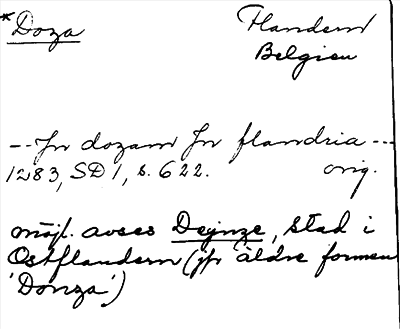 *Doza Flandern
Belgien
--Jn dozam Jn flandria---
1283, SD 1, s. 622. orig.
möjl. avses Dejnze, stad i
Ostflandern (jfr äldre formen
'Donza')